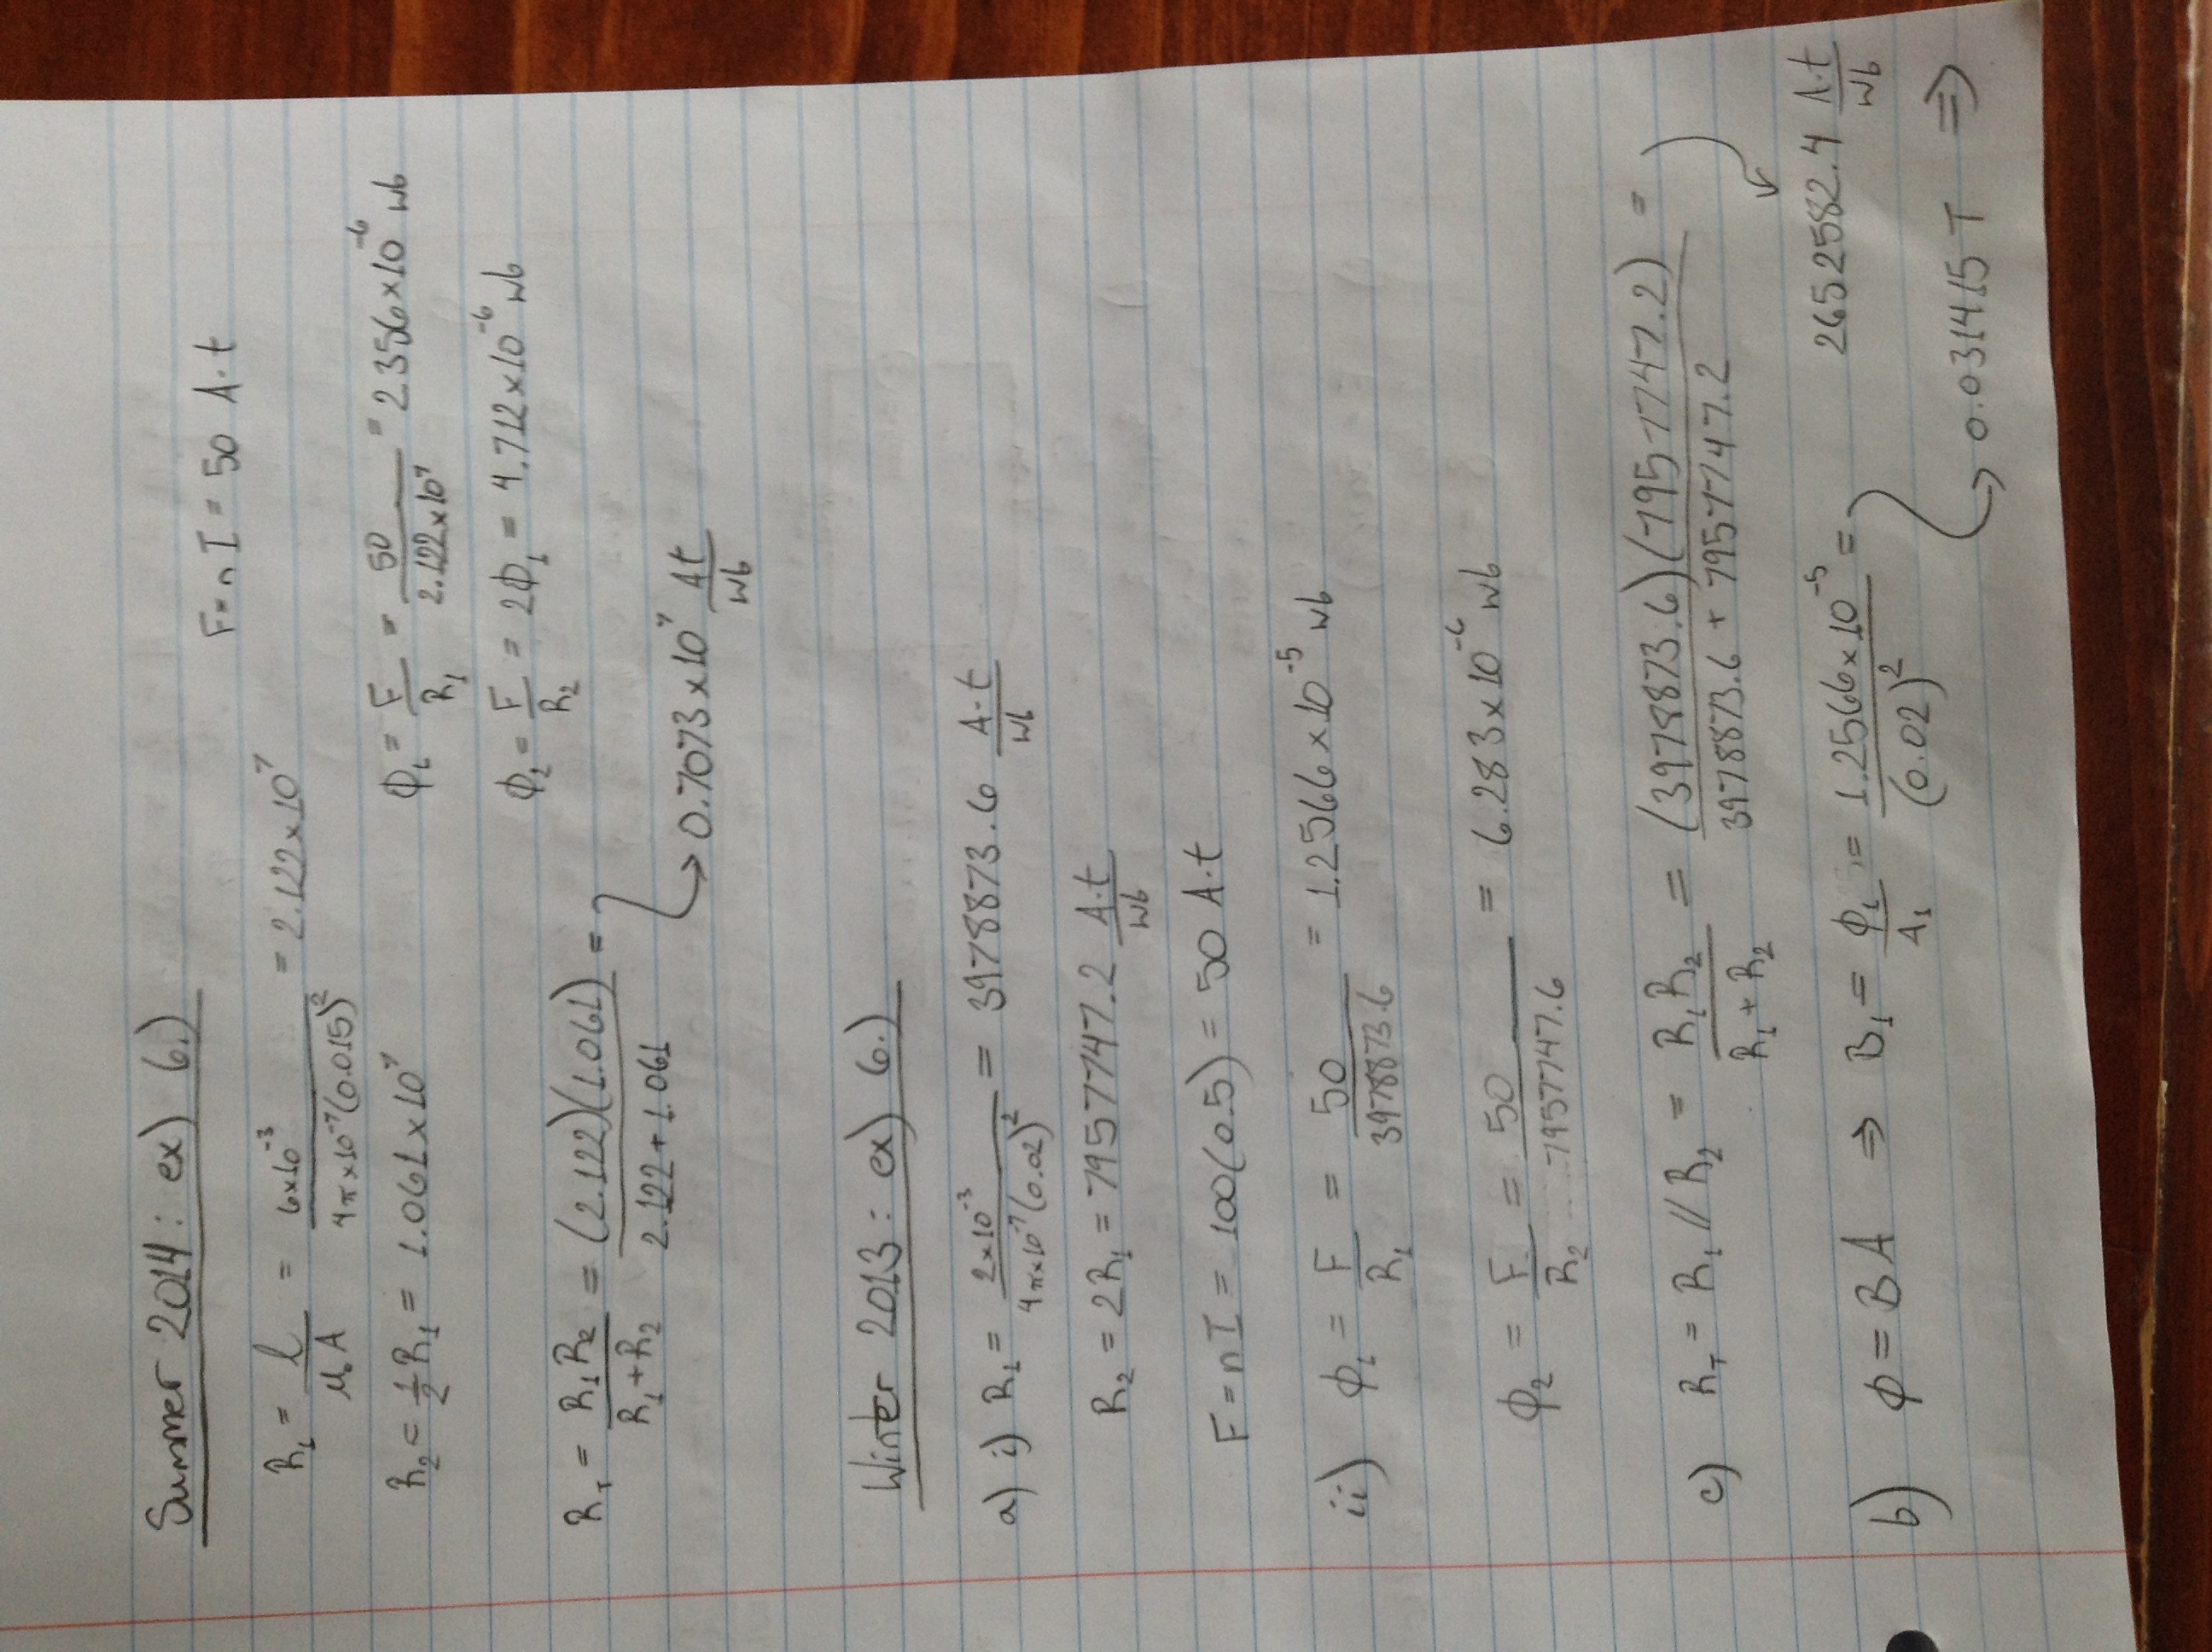 Summer 2014: ex) 6.)
F = nI = 50 A·t
R₁ = l/(μ₀A) = 6×10⁻³/(4π×10⁻⁷(0.015)²) = 2.122×10⁷
R₂ = ½R₁ = 1.061×10⁷
ϕ₁ = F/R₁ = 50/(2.122×10⁷) = 2356×10⁻⁶ wb
ϕ₂ = F/R₂ = 2ϕ₁ = 4.712×10⁻⁶ wb
R_T = R₁R₂/(R₁+R₂) = (2.122)(1.061)/(2.122+1.061) =
→ 0.7073×10⁷ At/wb
Winter 2013: ex) 6.)
a) i) R₁ = 2×10⁻³/(4π×10⁻⁷(0.02)²) = 3978873.6 A·t/wb
R₂ = 2R₁ = 7957747.2 A·t/wb
F = nI = 100(0.5) = 50 A·t
ii) ϕ₁ = F/R₁ = 50/3978873.6 = 1.2566×10⁻⁵ wb
ϕ₂ = F/R₂ = 50/7957747.6 = 6.283×10⁻⁶ wb
c) R_T = R₁//R₂ = R₁R₂/(R₁+R₂) = (3978873.6)(7957747.2)/(3978873.6 + 7957747.2) =
2652582.4 A·t/wb
b) ϕ = BA ⇒ B₁ = ϕ₁/A₁ = 1.2566×10⁻⁵/(0.02)² =
→ 0.031415 T ⇒